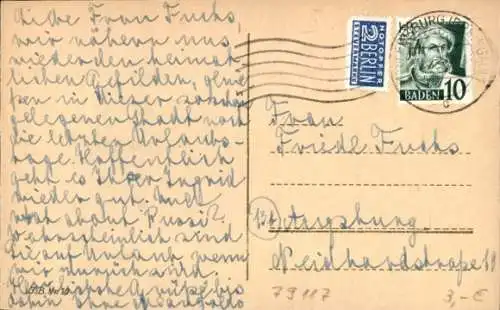 Liebe Frau Fuchs,
wir nähern uns
wieder den heimat-
lichen Gefilden, genies-
sen in dieser so schön
gelegenen Stadt noch
die letzten Urlaubs-
tage. Hoffentlich
geht es Ihrer Ingrid
wieder gut. What
about Pussi?
Wahrscheinlich sind
Sie auf Urlaub wenn
wir zurück sind.
Herzliche Grüße bis
dahin Ihre
NOTOPFER
2 BERLIN
STEUERMARKE
BADEN 10
Frau
Friedl Fuchs
13b Augsburg
Neidhardstraße 19
79117
3,- €